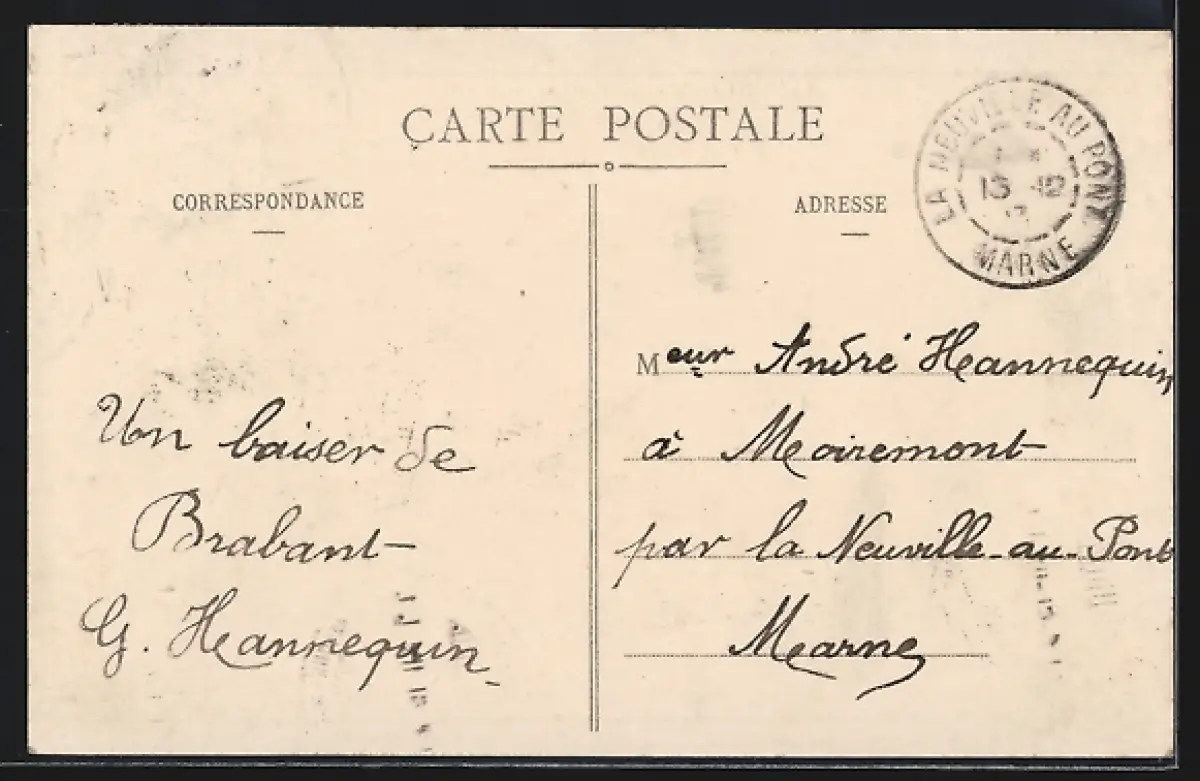 CARTE POSTALE
CORRESPONDANCE
ADRESSE
LA NEUVILLE AU PONT
13 12
MARNE
Un baiser de
Brabant
G. Hannequin
Meur André Hannequin
à Moiremont
par la Neuville-au-Pont
Marne